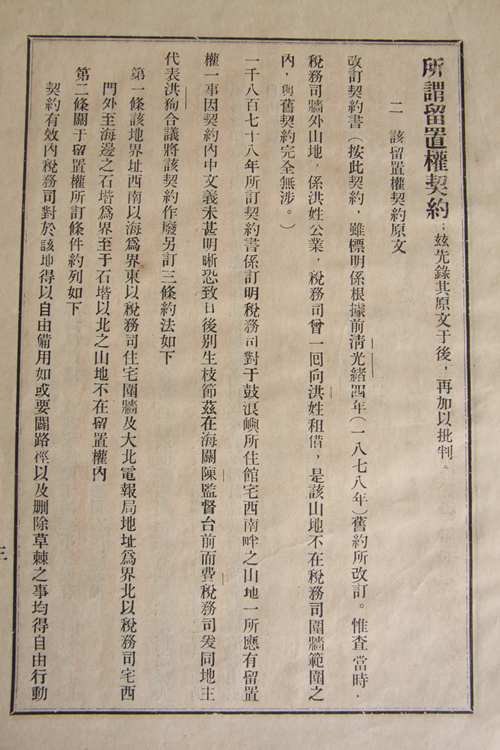 所謂留置權契約；玆先錄其原文于後，再加以批判。
二　該留置權契約原文
改訂契約書（按此契約，雖標明係根據前淸光緖四年（一八七八年）舊約所改訂。惟査當時，
稅務司牆外山地，係洪姓公業，稅務司曾一回向洪姓租借，是該山地不在稅務司圍牆範圍之
內，與舊契約完全無涉。）
一千八百七十八年所訂契約書係訂明稅務司對于鼓浪嶼所住館宅西南畔之山地一所應有留置
權一事因契約內中文義未甚明晰恐致日後別生枝節茲在海關陳監督台前而費稅務司爰同地主
代表洪狗合議將該契約作廢另訂三條約法如下
第一條該地界址西南以海爲界東以稅務司住宅圍牆及大北電報局地址爲界北以稅務司宅西
門外至海邊之石堦爲界至于石堦以北之山地不在留置權內
第二條關于留置權所訂條件約列如下
契約有效內稅務司對於該地得以自由備用如或要闢路徑以及刪除草棘之事均得自由行動
三